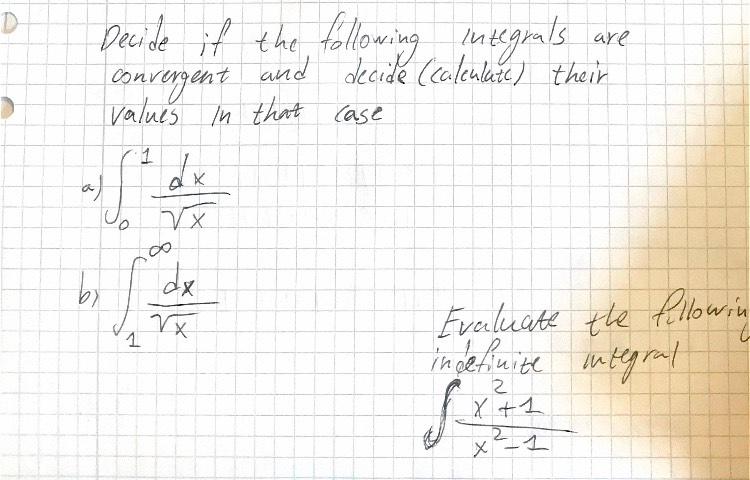 Decide if the following integrals are
convergent and decide (calculate) their
values in that case
a) ∫₀¹ dx/√x
b) ∫₁^∞ dx/√x
Evaluate the followin
indefinite integral
∫ (x²+1)/(x²-1)